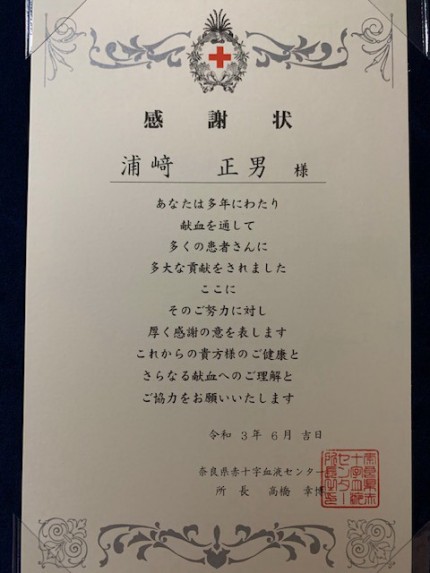 感謝状
浦﨑 正男 様
あなたは多年にわたり
献血を通して
多くの患者さんに
多大な貢献をされました
ここに
そのご努力に対し
厚く感謝の意を表します
これからの貴方様のご健康と
さらなる献血へのご理解と
ご協力をお願いいたします
令和 3年 6月 吉日
奈良県赤十字血液センター
所長 高橋 幸博
奈良県赤
十字血液
センター
所長之印